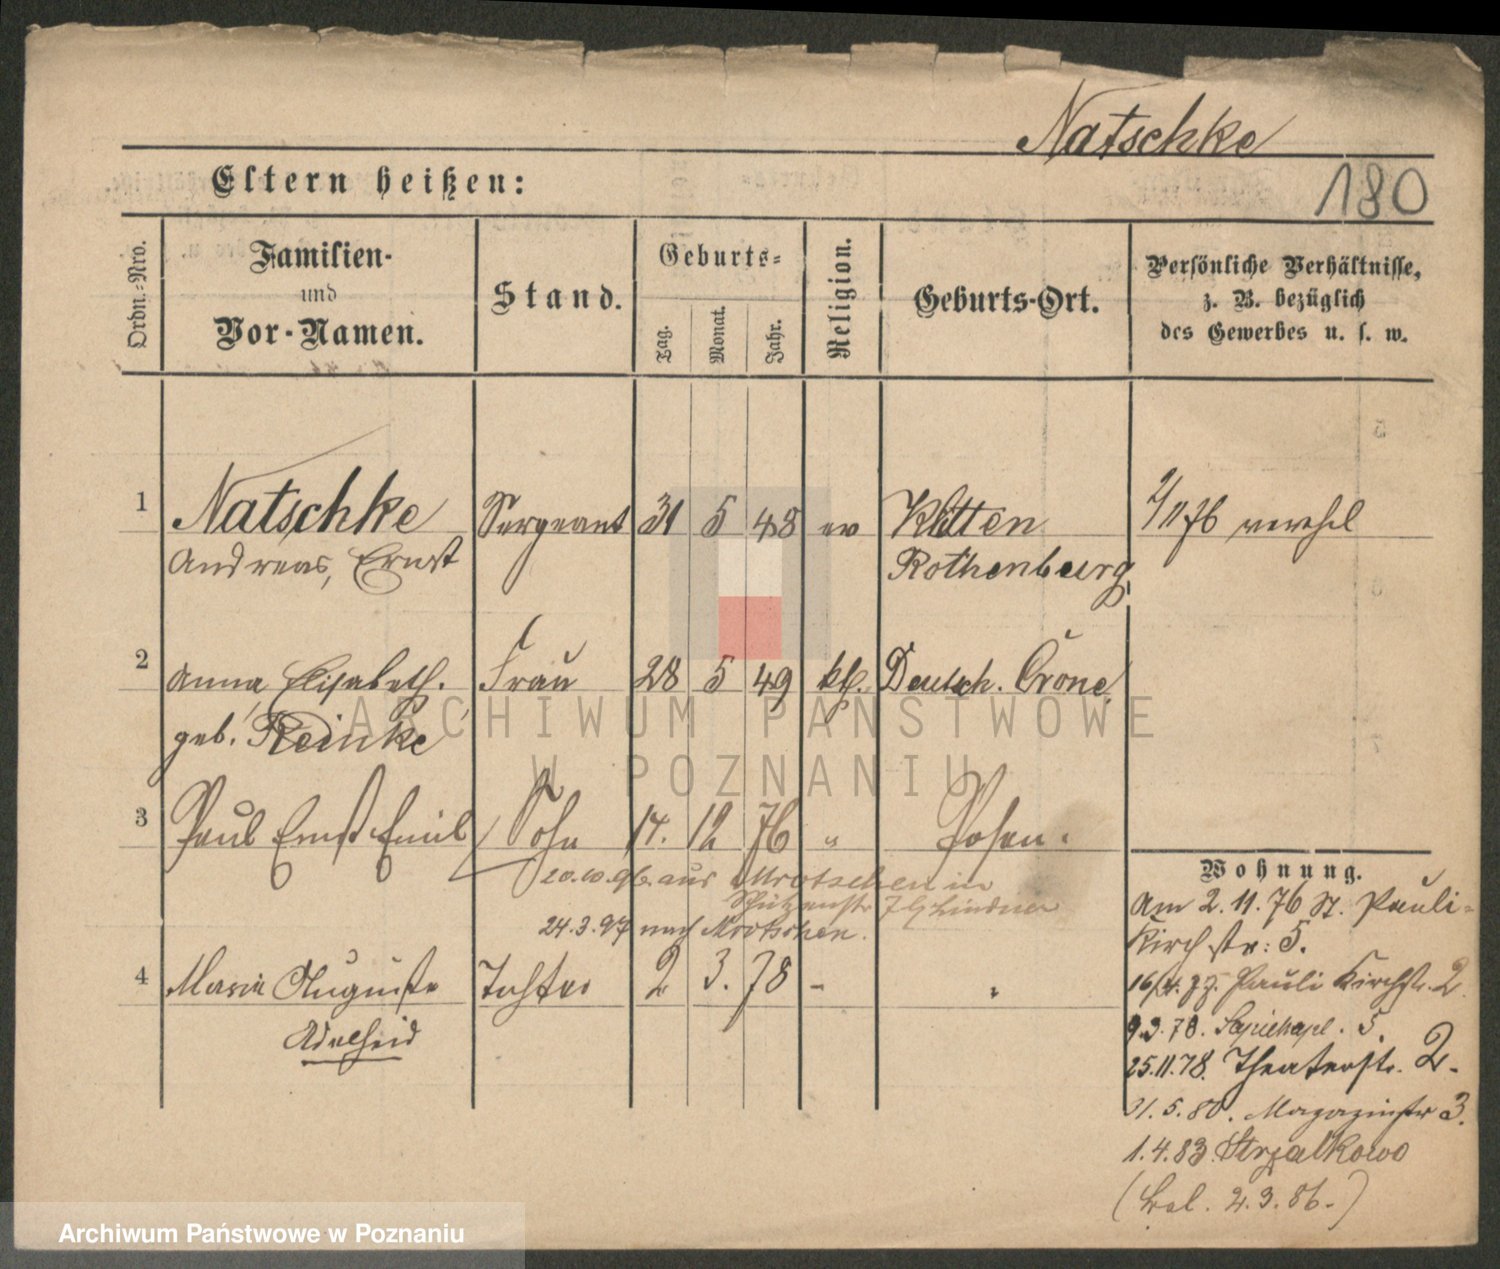 Natschke
Eltern heißen:
180
Ordn.-Nro.
Familien-
und
Vor-Namen.
Stand.
Geburts-
Tag.
Monat.
Jahr.
Religion.
Geburts-Ort.
Persönliche Verhältnisse,
z. B. bezüglich
des Gewerbes u. s. w.
1 Natschke Sergeant 31 5 48 ev
Andreas, Ernst Rothenburg
2/11 76
2 Anna, Elisabeth. Frau 28 5 49 kth. Deutsch. Crone
geb. Reinke
3 Paul Ernst Emil Sohn 17. 12 76 " Posen.
20.10.96. aus Mrotschen in
Schützenstr 7 by Lindner
24.3.97 nach Mrotschen.
4 Maria Auguste Tochter 2 3. 78 -
Adelheid
Wohnung.
Am 2.11.76 St. Pauli-
Kirchstr: 5.
16/4.77. Pauli Kirchstr. 2.
9.3.78. Sapiehapl. 5.
25.11.78. Theaterstr. 2.
31.5.80. Magazinstr 3.
1.4.83. Strzalkowo
2.3.86.
ARCHIWUM PAŃSTWOWE
W POZNANIU
Archiwum Państwowe w Poznaniu